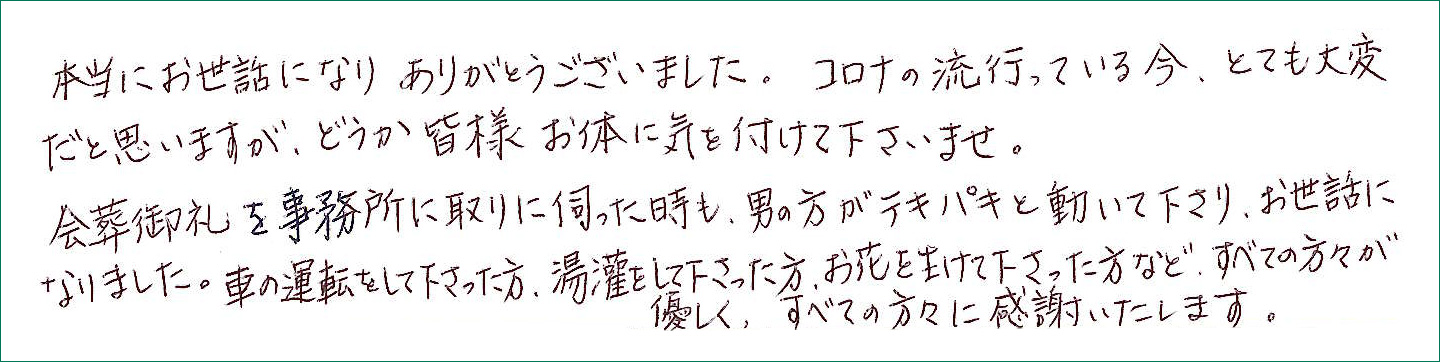 本当にお世話になり ありがとうございました。 コロナの流行っている今、とても大変
だと思いますが、どうか皆様お体に気を付けて下さいませ。
会葬御礼を事務所に取りに伺った時も、男の方がテキパキと動いて下さり、お世話に
なりました。車の運転をして下さった方、湯灌をして下さった方、お花を生けて下さった方など、すべての方々が
優しく、すべての方々に感謝いたします。